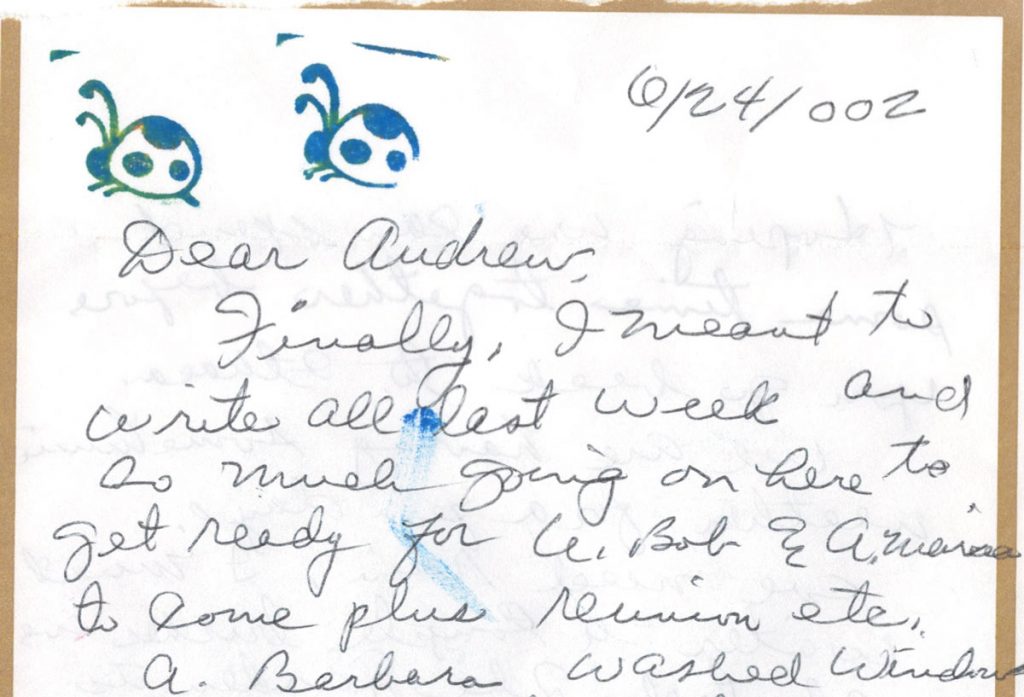 6/24/002
Dear Andrew,
Finally, I meant to
write all last week and
so much going on here to
get ready for U. Bob & A. Marcia
to come plus reunion etc.
A. Barbara washed Window